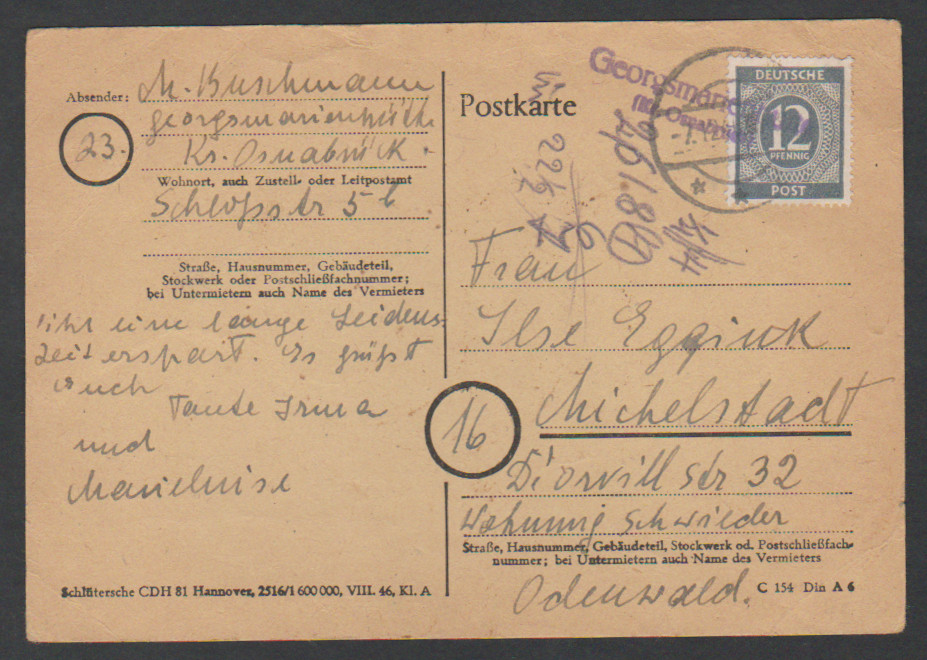 Absender: M. Buschmann
georgsmarienhütte
23.
Kr. Osnabrück.
Wohnort, auch Zustell- oder Leitpostamt
Schloßstr 5 b
Straße, Hausnummer, Gebäudeteil,
Stockwerk oder Postschließfachnummer;
bei Untermietern auch Name des Vermieters
ihr eine lange Leidens-
zeit erspart. Es grüßt
Euch
Tante Irma
und
Marieluise
Schlütersche CDH 81 Hannover, 2516/1 600 000, VIII. 46, Kl. A
Postkarte
DEUTSCHE
12
PFENNIG
POST
Frau
Ilse Eggink
16
Michelstadt
Wohnung Schwieder
Straße, Hausnummer, Gebäudeteil, Stockwerk od. Postschließfach-
nummer; bei Untermietern auch Name des Vermieters
C 154 Din A 6
Odenwald.